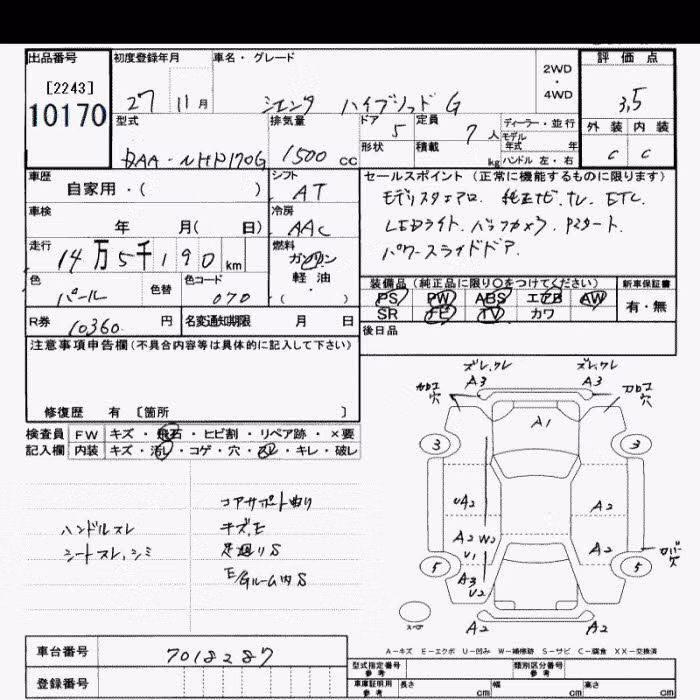 出品番号 初度登録年月 車名・グレード 2WD・4WD 評価点
[2243]
10170
27 11月 シエンタ ハイブリッド G 3.5
型式 排気量 ドア 定員 ディーラー・並行 外装 内装
5 7人 モデル年式 年
形状 積載 kg ハンドル 左・右
DAA-NHP170G 1500cc C C
車歴 シフト セールスポイント (正常に機能するものに限ります)
自家用・( ) AT モデリスタエアロ. 純正ナビ. TV. ETC.
車検 冷房 LEDライト. バックカメラ. Pスタート.
年 月( 日) AAC パワースライドドア.
走行 燃料
14万5千190km ガソリン
軽油
・( )
色 色替 色コード 装備品 (純正品に限り○をつけてください) 新車保証書
パール 070 PS PW ABS エアB AW 有・無
SR ナビ TV カワ
R券 10360円 名変通知期限 月 日 後日品
注意事項申告欄 (不具合内容等は具体的に記入して下さい)
修復歴 有 〔箇所 〕
検査員 FW キズ・飛石・ヒビ割・リペア跡・×要
記入欄 内装 キズ・汚レ・コゲ・穴・スレ・キレ・破レ
コアサポート曲り
ハンドルスレ キズ.E
シートスレ.シミ 足廻りS
E/Gルーム内S
ズレ.ワレ ズレ.ワレ
A3 A3
穴 穴
A1
3 3
UA2 A2
A2 W2 A2
U1 穴
5 5
A3
U2
スペア A2 A2
A-キズ E-エクボ U-凹み W-補修跡 S-サビ C-腐食 XX-交換済
車台番号 7018287 型式指定番号 参考 類別区分番号 参考
登録番号 車庫証明用 参考 長さ cm 幅 cm 高さ cm